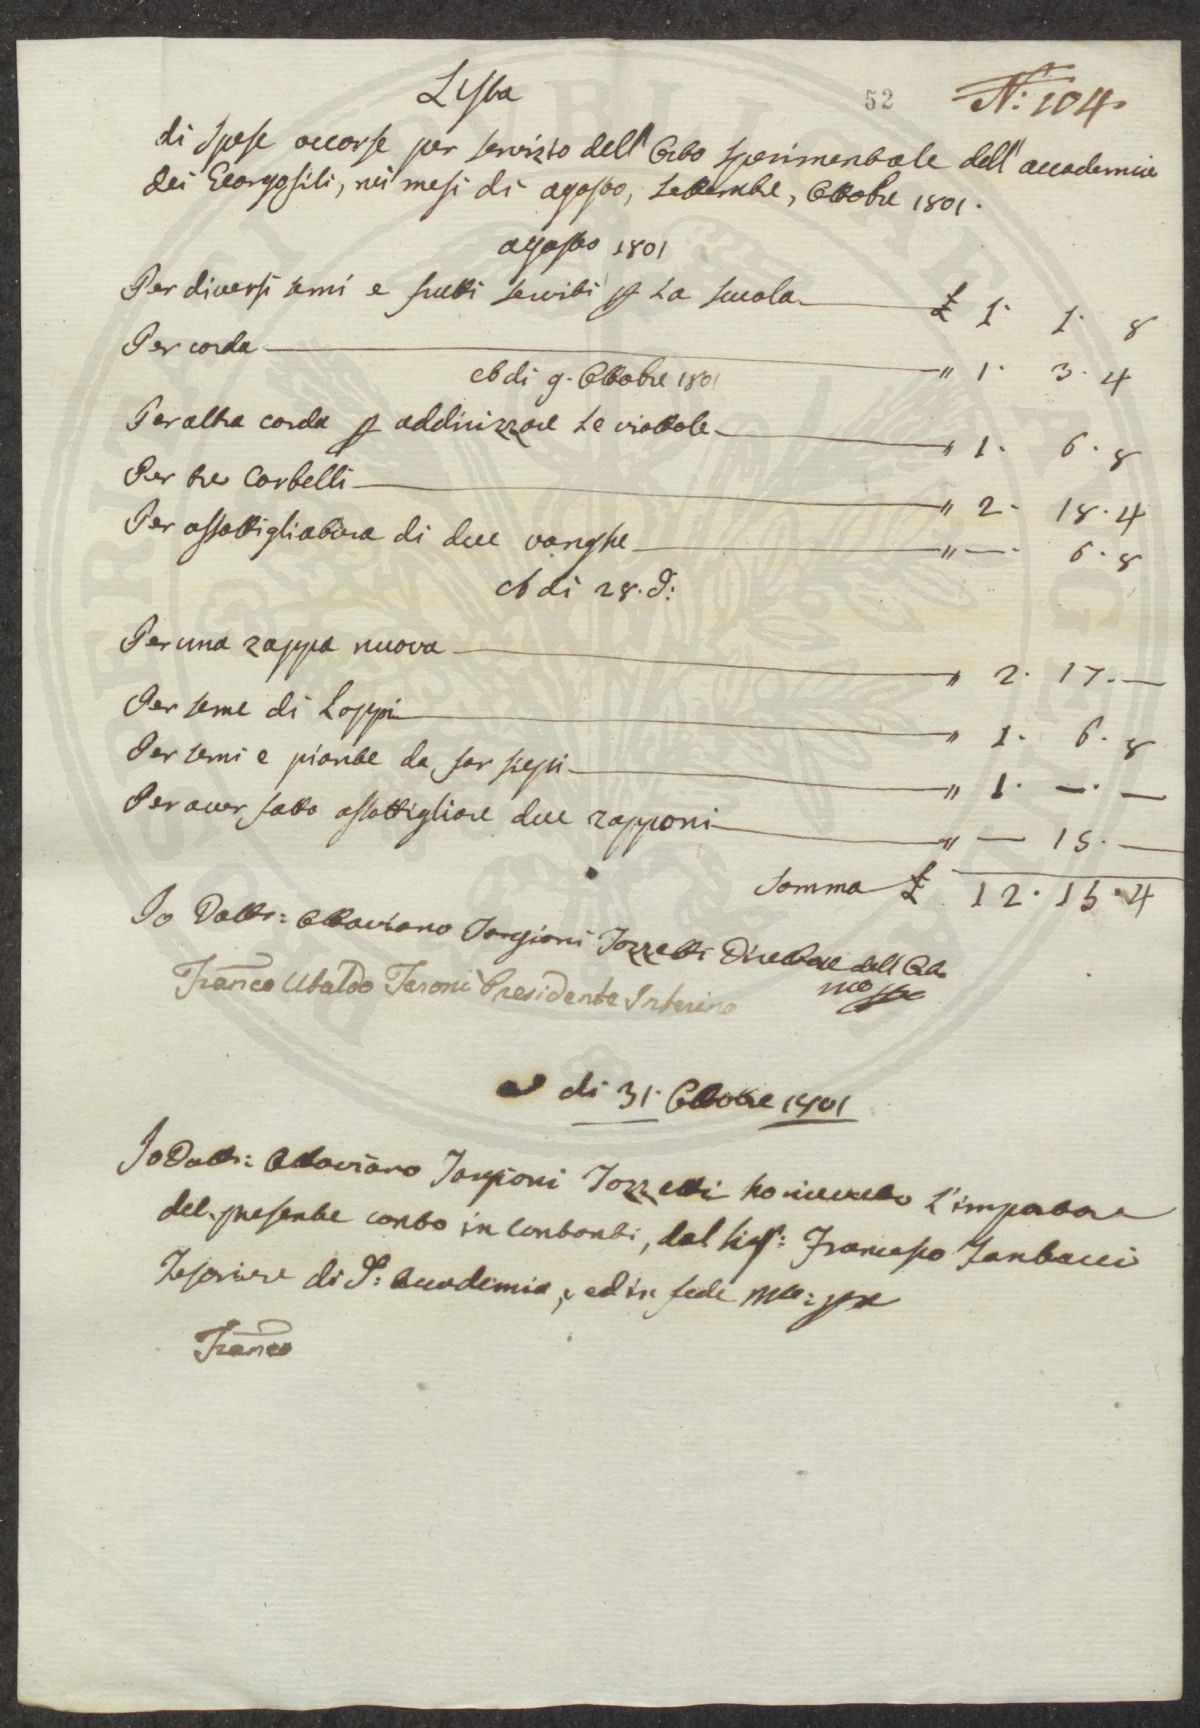 Lista
52
N: 104.
di Spese occorse per servizio dell'Orto Sperimentale dell'accademia
dei Georgofili, nei mesi di agosto, Settembre, Ottobre 1801.
agosto 1801
Per diversi semi e frutti serviti p La scuola £ 1. 1. 8
Per corda " 1. 3. 4
A di 9. Ottobre 1801
Per altra corda p addirizzare Le viottole " 1. 6. 8
Per tre Corbelli " 2. 18. 4
Per assottigliatura di due vanghe " — . 6. 8
A di 28. d:
Per una zappa nuova " 2. 17. —
Per seme di Loppi " 1. 6. 8
Per semi e piante da far siepi " 1. — . —
Per aver fatto assottigliare due zapponi " — 15. —
Somma £ 12. 15. 4
Io Dottr: Ottaviano Targioni Tozzetti Direttore dell'Orto
mo ppa
Franco Ubaldo Feroni Presidente Interino
A di 31. Ottobre 1801
Io Dottr: Ottaviano Targioni Tozzetti ho ricevuto L'importare
del presente conto in Contanti, dal Sigr: Francesco Tartucci
Tesoriere di d: Accademia, ed in fede mo: ppa
Franco